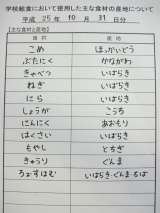 学校給食において使用した主な食材の産地について
平成 25年 10月 31日分
【主な食材と産地】
食材 産地
こめ ほっかいどう
ぶたにく かながわ
きゃべつ いばらき
ねぎ いばらき
にら いばらき
しょうが こうち
にんにく あおもり
はくさい いばらき
もやし とちぎ
きゅうり ぐんま